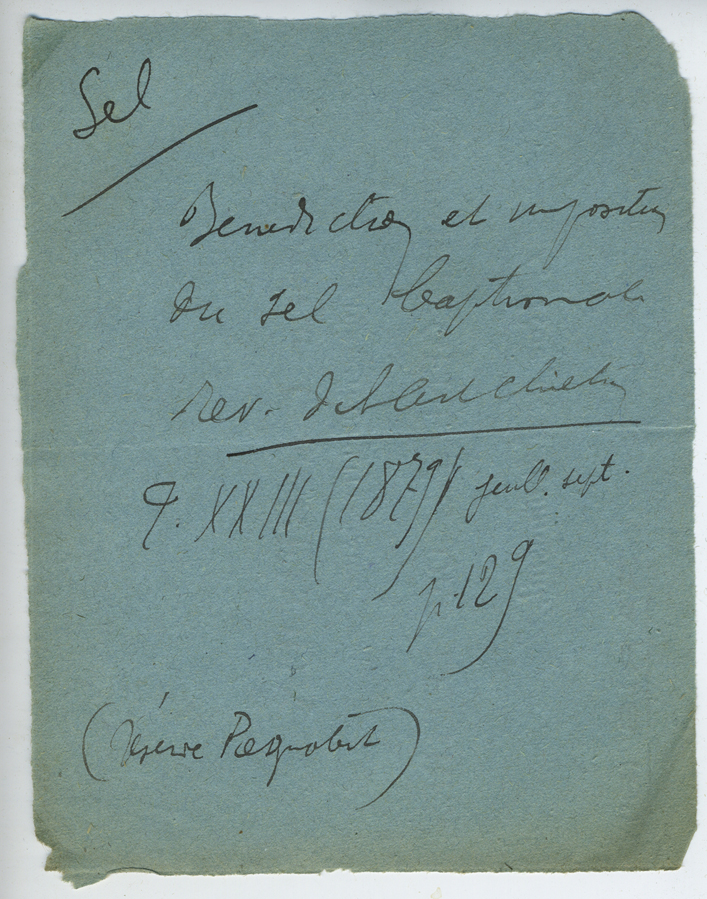 Sel
Benediction et imposition
du sel baptismal
Rev. de l'Art chrétien
T. XXIII (1879) juill. sept.
p. 129
(Désiré